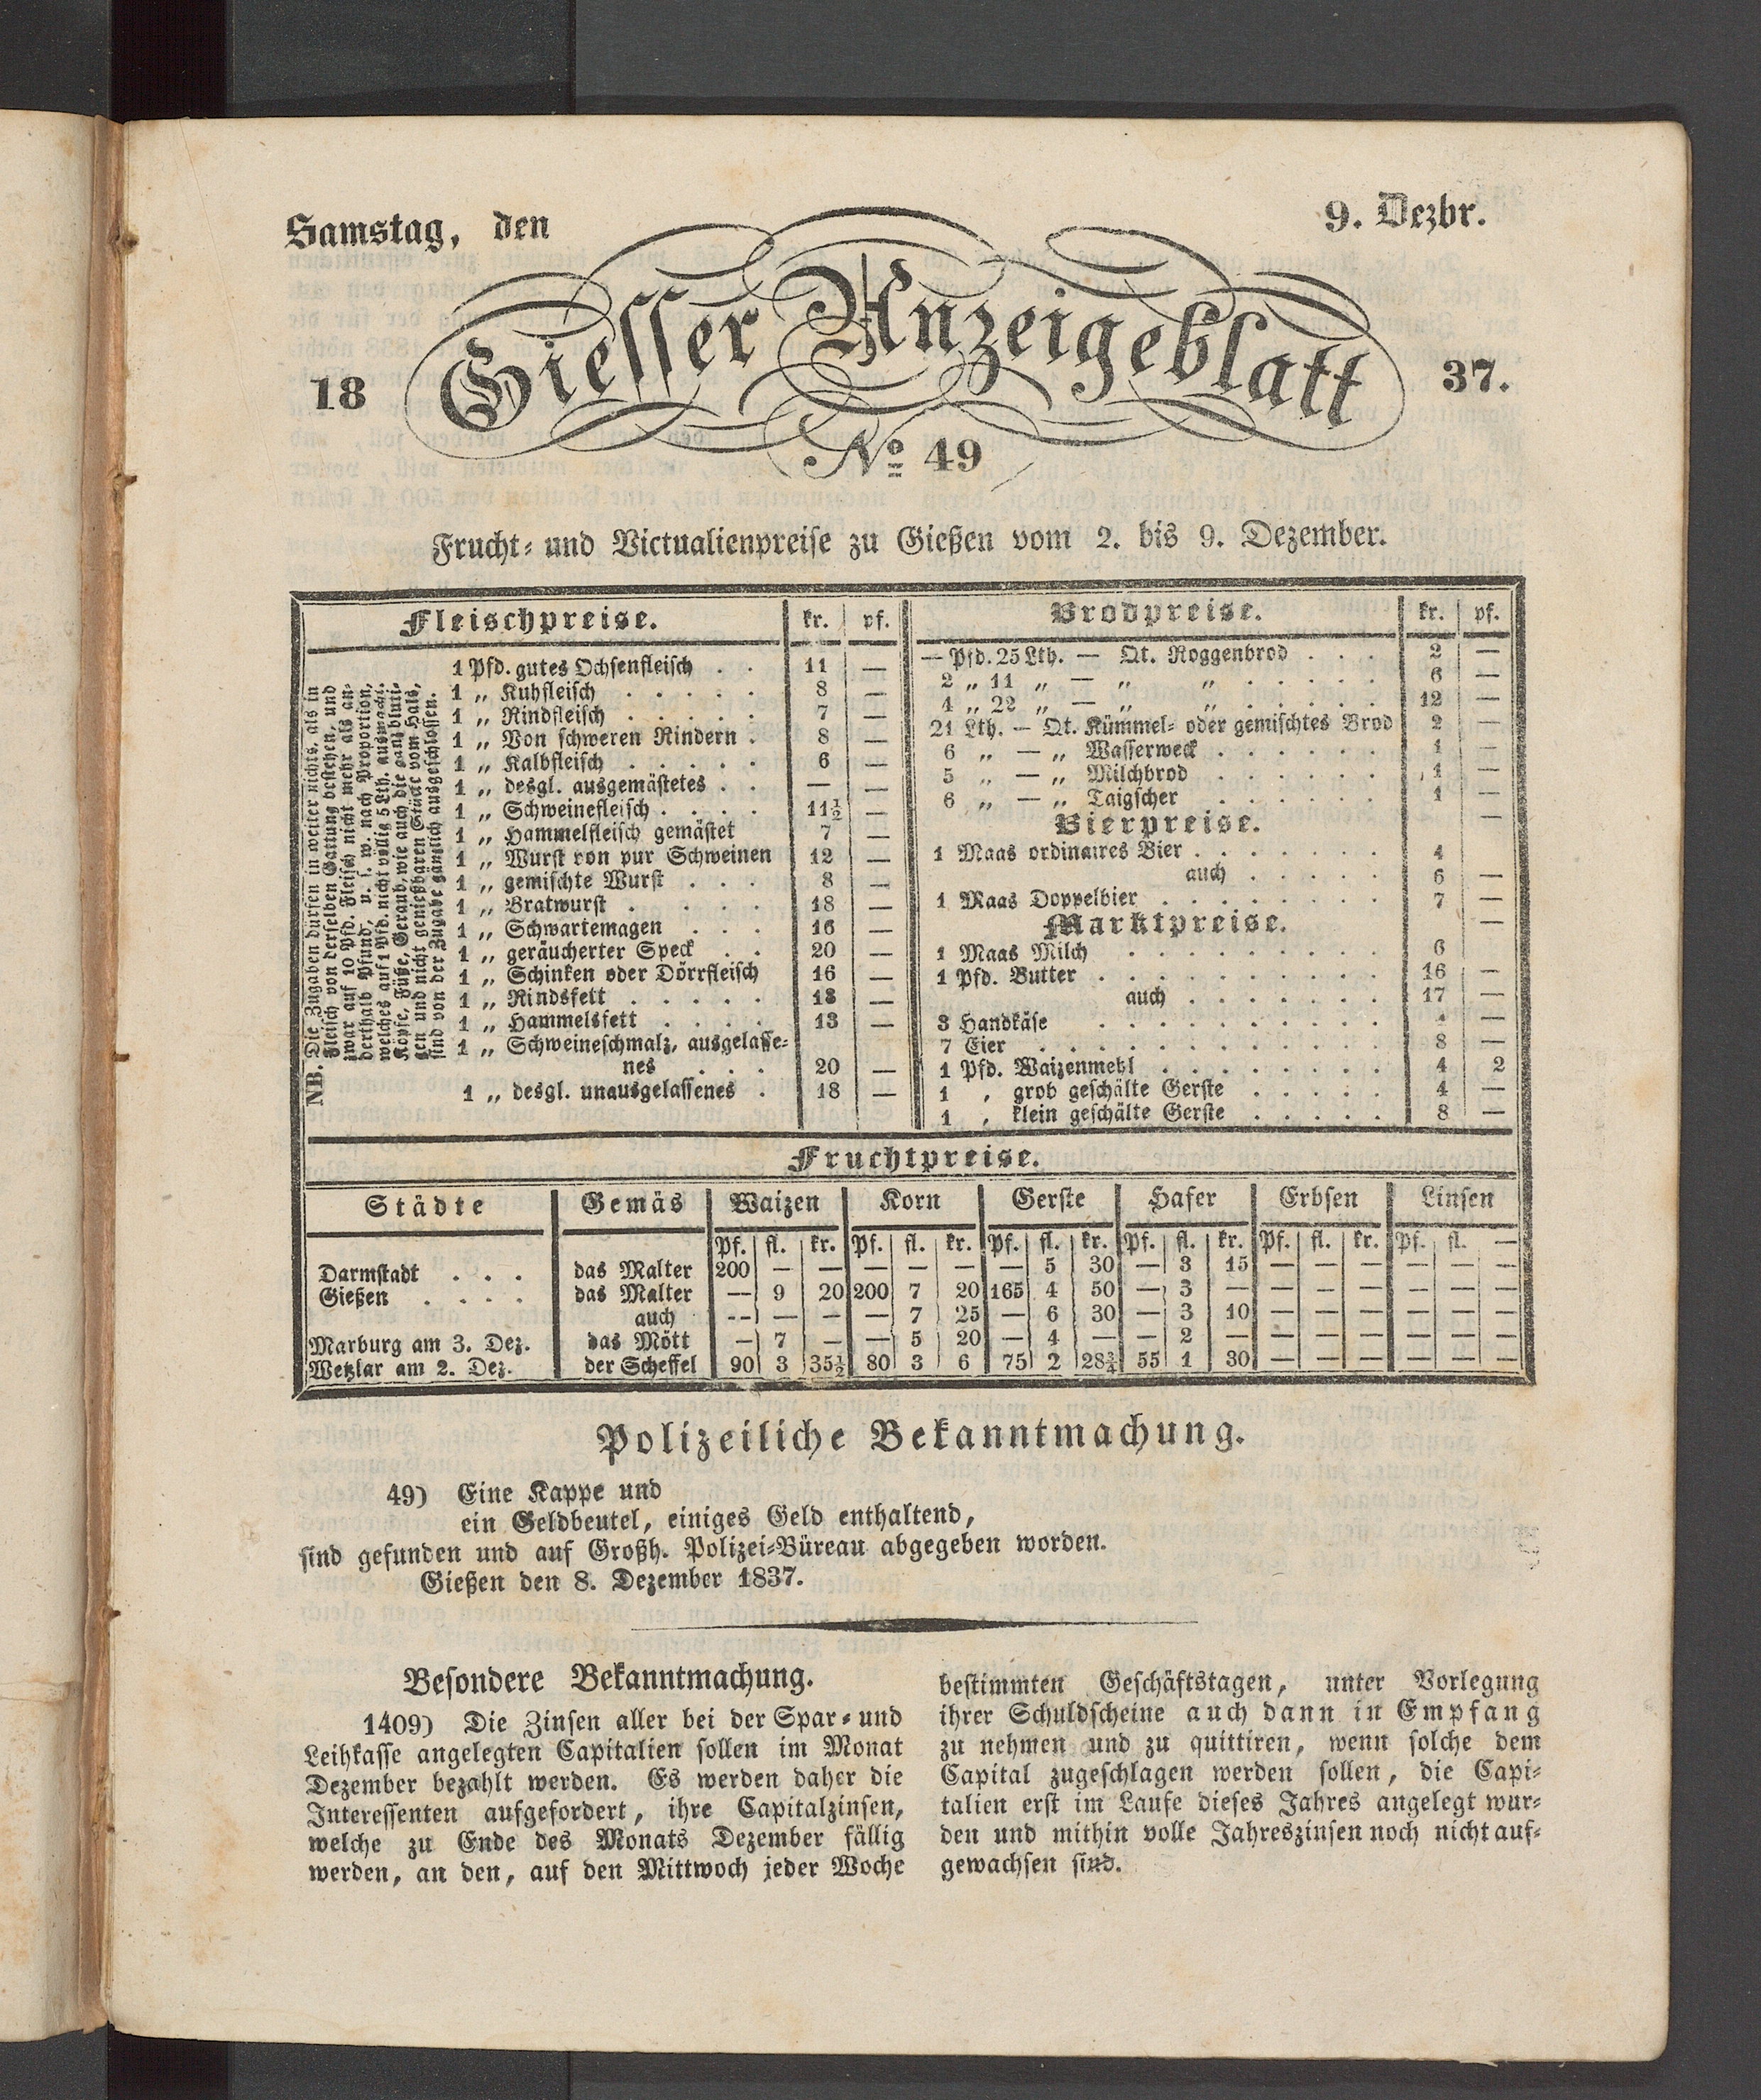 Samstag, den 9. Dezbr.
18 Giesser Anzeigeblatt 37.
No 49
Frucht- und Victualienpreise zu Gießen vom 2. bis 9. Dezember.
Fleischpreise. kr. pf.
NB. Die Zugaben dürfen in weiter nichts, als in
Fleisch von derselben Gattung bestehen, und
zwar auf 10 Pfd. Fleisch nicht mehr als an-
derthalb Pfund, u. s. w. nach Proportion,
welches auf 1 Pfd. nicht völlig 5 Lth. ausmacht.
Köpfe, Füße, Geraub, wie auch die ganz bluti-
gen und nicht genießbaren Stücke vom Hals,
sind von der Zugabe gänzlich ausgeschlossen.
1 Pfd. gutes Ochsenfleisch . . 11 —
1 „ Kuhfleisch . . . . . 8 —
1 „ Rindfleisch . . . . . 7 —
1 „ Von schweren Rindern . 8 —
1 „ Kalbfleisch . . . . . 6 —
1 „ desgl. ausgemästetes . . — —
1 „ Schweinefleisch . . . . 11½ —
1 „ Hammelfleisch gemästet 7 —
1 „ Wurst von pur Schweinen 12 —
1 „ gemischte Wurst . . . 8 —
1 „ Bratwurst . . . . 18 —
1 „ Schwartemagen . . . 16 —
1 „ geräucherter Speck . . 20 —
1 „ Schinken oder Dörrfleisch 16 —
1 „ Rindsfett . . . . . 18 —
1 „ Hammelsfett . . . . 13 —
1 „ Schweineschmalz, ausgelasse-
nes . . . 20 —
1 „ desgl. unausgelassenes . 18 —
Brodpreise. kr. pf.
— Pfd. 25 Lth. — Qt. Roggenbrod . . . 2 —
2 „ 11 „ — „ „ . . . . . 6 —
4 „ 22 „ — „ „ . . . . . 12 —
21 Lth. — Qt. Kümmel- oder gemischtes Brod 2 —
6 „ — „ Wasserweck . . . . . . 1 —
5 „ — „ Milchbrod . . . . . . 1 —
6 „ — „ Taigscher . . . . . . 1 —
Bierpreise. —
1 Maas ordinaires Bier . . . . . . . 4
auch . . . . . 6 —
1 Maas Doppelbier . . . . . . . . 7 —
Marktpreise. —
1 Maas Milch . . . . . . . . . 6
1 Pfd. Butter . . . . . . . . . . 16 —
auch . . . . . . . 17 —
3 Handkäse . . . . . . . . . . —
7 Eier . . . . . . . . . . . . 8 —
1 Pfd. Waizenmehl . . . . . . . . 4 2
1 „ grob geschälte Gerste . . . . . 4 —
1 „ klein geschälte Gerste . . . . . 8 —
Fruchtpreise.
Städte Gemäs Waizen Korn Gerste Hafer Erbsen Linsen
Pf. fl. kr. Pf. fl. kr. Pf. fl. kr. Pf. fl. kr. Pf. fl. kr. Pf. fl. —
Darmstadt . . . das Malter 200 — — — — — — 5 30 — 3 15 — — — — — —
Gießen . . . . das Malter — 9 20 200 7 20 165 4 50 — 3 — — — — — — —
auch — — — — 7 25 — 6 30 — 3 10 — — — — — —
Marburg am 3. Dez. das Mött — 7 — — 5 20 — 4 — — 2 — — — — — — —
Wetzlar am 2. Dez. der Scheffel 90 3 35½ 80 3 6 75 2 28¾ 55 1 30 — — — — — —
Polizeiliche Bekanntmachung.
49) Eine Kappe und
ein Geldbeutel, einiges Geld enthaltend,
sind gefunden und auf Großh. Polizei-Büreau abgegeben worden.
Gießen den 8. Dezember 1837.
Besondere Bekanntmachung.
1409) Die Zinsen aller bei der Spar- und
Leihkasse angelegten Capitalien sollen im Monat
Dezember bezahlt werden. Es werden daher die
Interessenten aufgefordert, ihre Capitalzinsen,
welche zu Ende des Monats Dezember fällig
werden, an den, auf den Mittwoch jeder Woche
bestimmten Geschäftstagen, unter Vorlegung
ihrer Schuldscheine auch dann in Empfang
zu nehmen und zu quittiren, wenn solche dem
Capital zugeschlagen werden sollen, die Capi-
talien erst im Laufe dieses Jahres angelegt wur-
den und mithin volle Jahreszinsen noch nicht auf-
gewachsen sind.